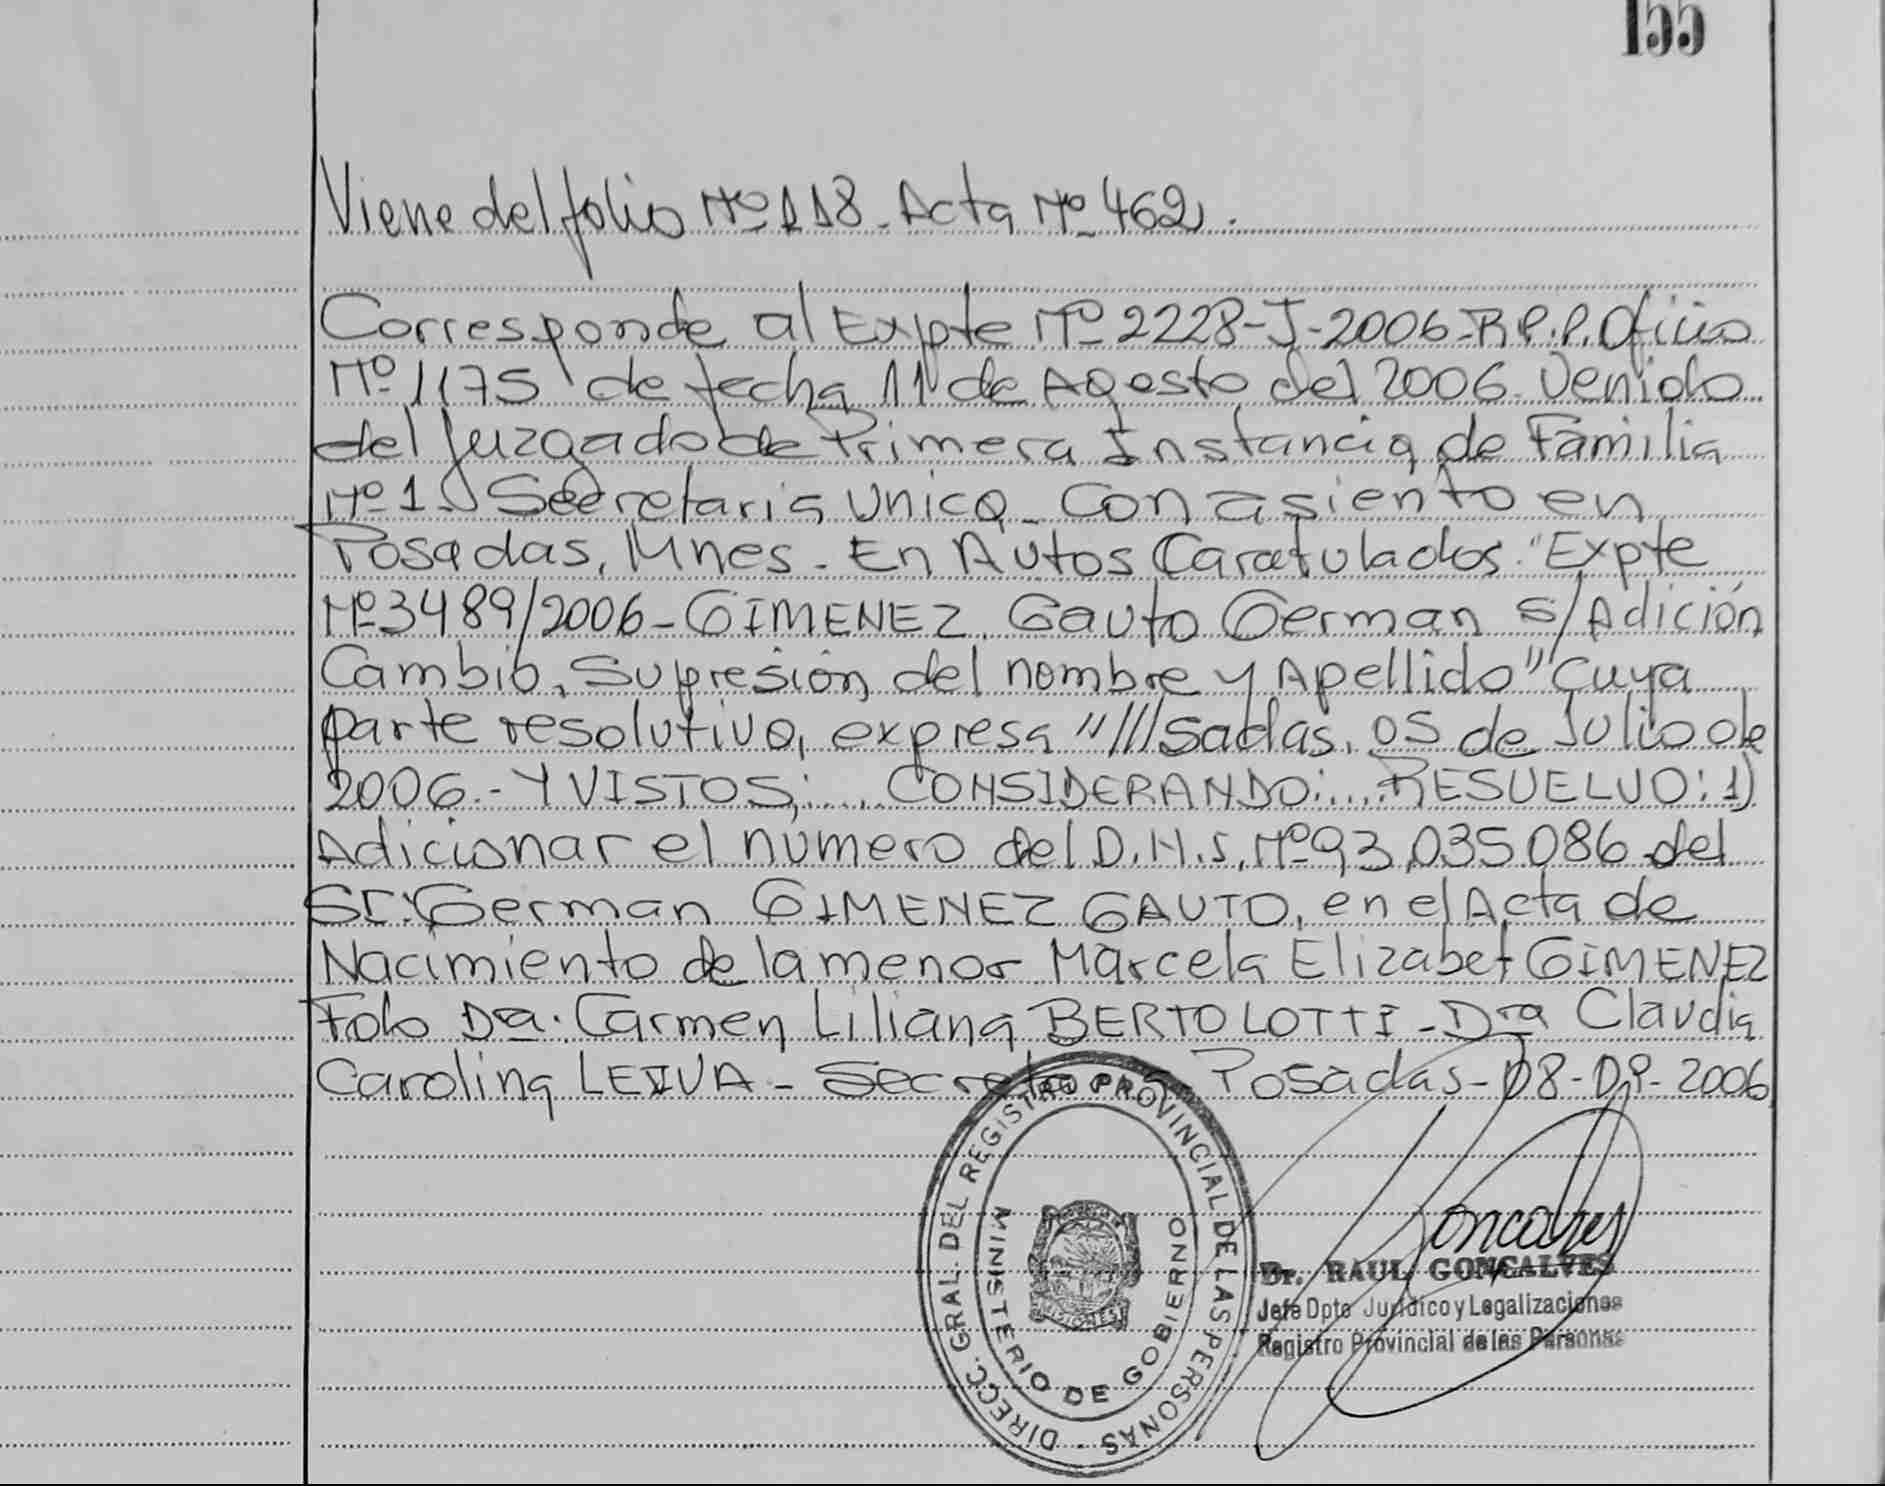 155
Viene del folio Nº 118 - Acta Nº 462.
Corresponde al Expte Nº 2228-J-2006-R.P.P. Oficio
Nº 1175 de fecha 11 de Agosto del 2006. Venido
del Juzgado de Primera Instancia de Familia
Nº 1. Secretaria Unica - Con asiento en
Posadas, Mnes. - En Autos Caratulados. "Expte
Nº 3489/2006 - GIMENEZ, Gauto German S/Adición
Cambio, Supresión del nombre y Apellido" Cuya
parte resolutiva, expresa "///sadas, 05 de Julio de
2006.- Y VISTOS;.... CONSIDERANDO:.... RESUELVO: 1)
Adicionar el numero del D.N.I. Nº 93.035.086 del
Sr: German GIMENEZ GAUTO, en el Acta de
Nacimiento de la menor Marcela Elizabet GIMENEZ
Fdo Dra. Carmen Liliana BERTOLOTTI - Dra Claudia
Carolina LEIVA - Posadas - 08-09-2006
DIRECC. GRAL. DEL REGISTRO PROVINCIAL DE LAS PERSONAS -
MINISTERIO DE GOBIERNO
MISIONES
Goncalves
Dr. RAUL GONCALVES
Jefe Dpto Jurídico y Legalizaciones
Registro Provincial de las Personas